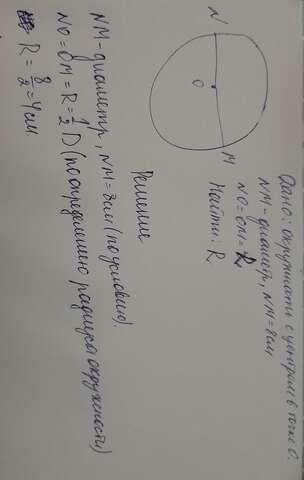 Дано: окружность с центром в точке О.
NM-диаметр, NM=8см
NO=OM=R
Найти: R
N
O
M
Решение
NM-диаметр, NM=8см (по условию).
NO=OM=R=½D (по определению радиуса окружности)
R=8/2=4см